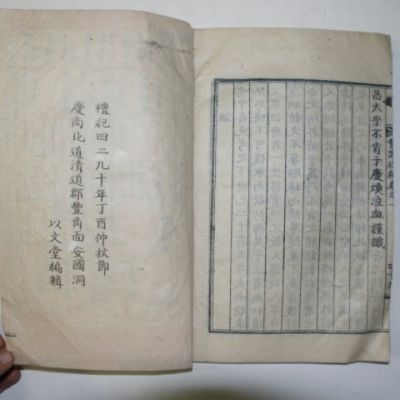 大乎不肖子慶煥泣血謹識
檀紀四二九十年丁酉仲秋節
慶尚北道清道郡豐角面安國洞
以文堂編輯